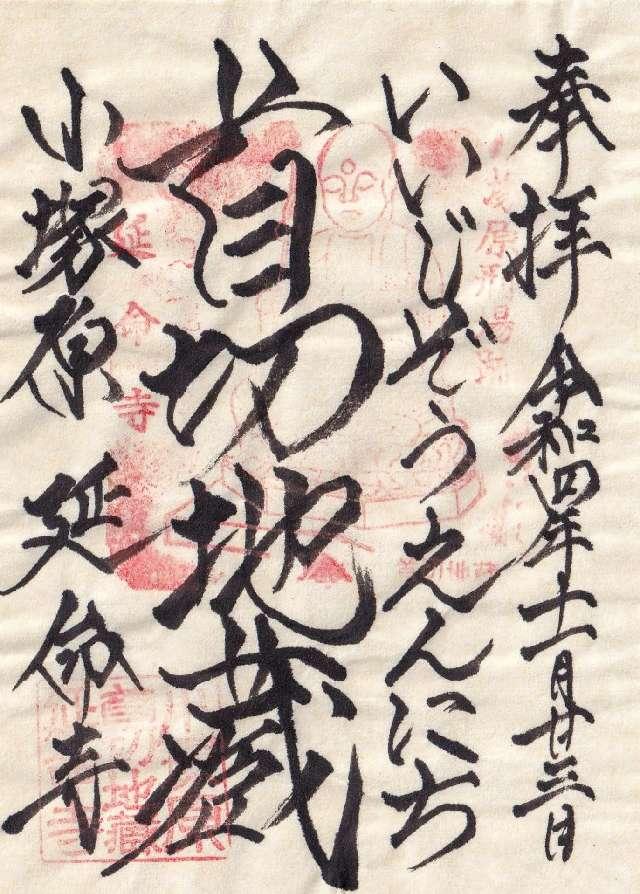 奉拝 令和四年十一月廿三日
いいじぞうえんにち
首切地蔵
小塚原 延命寺
延命寺